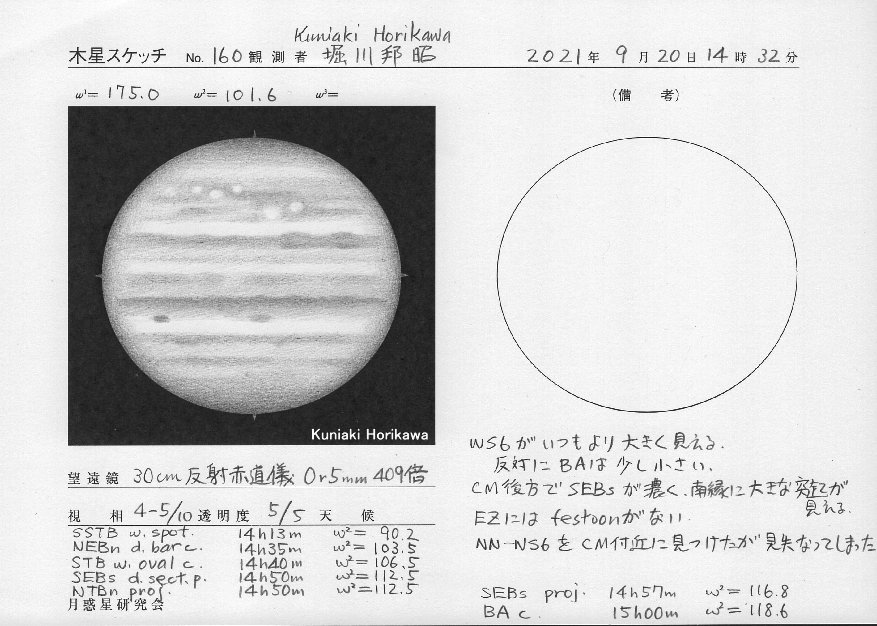 Kuniaki Horikawa
木星スケッチ No. 160 観測者 堀川邦昭 2021年 9月20日14時32分
ω¹= 175.0 ω²= 101.6 ω³=
(備 考)
Kuniaki Horikawa
望遠鏡 30cm反射赤道儀 Or5mm 409倍
視 相 4-5/10 透明度 5/5 天 候
SSTB w. spot. 14h13m ω²= 90.2
NEBn d. bar c. 14h35m ω²= 103.5
STB w. oval c. 14h40m ω²= 106.5
SEBs d. sect. p. 14h50m ω²= 112.5
NTBn proj. 14h50m ω²= 112.5
月惑星研究会
WS6がいつもより大きく見える.
反対にBAは少し小さい.
CM後方でSEBsが濃く、南縁に大きな突起が
見える.
EZにはfestoonがない.
NN-WS6をCM付近に見つけたが見失なってしまった
SEBs proj. 14h57m ω²= 116.8
BA c. 15h00m ω²= 118.6